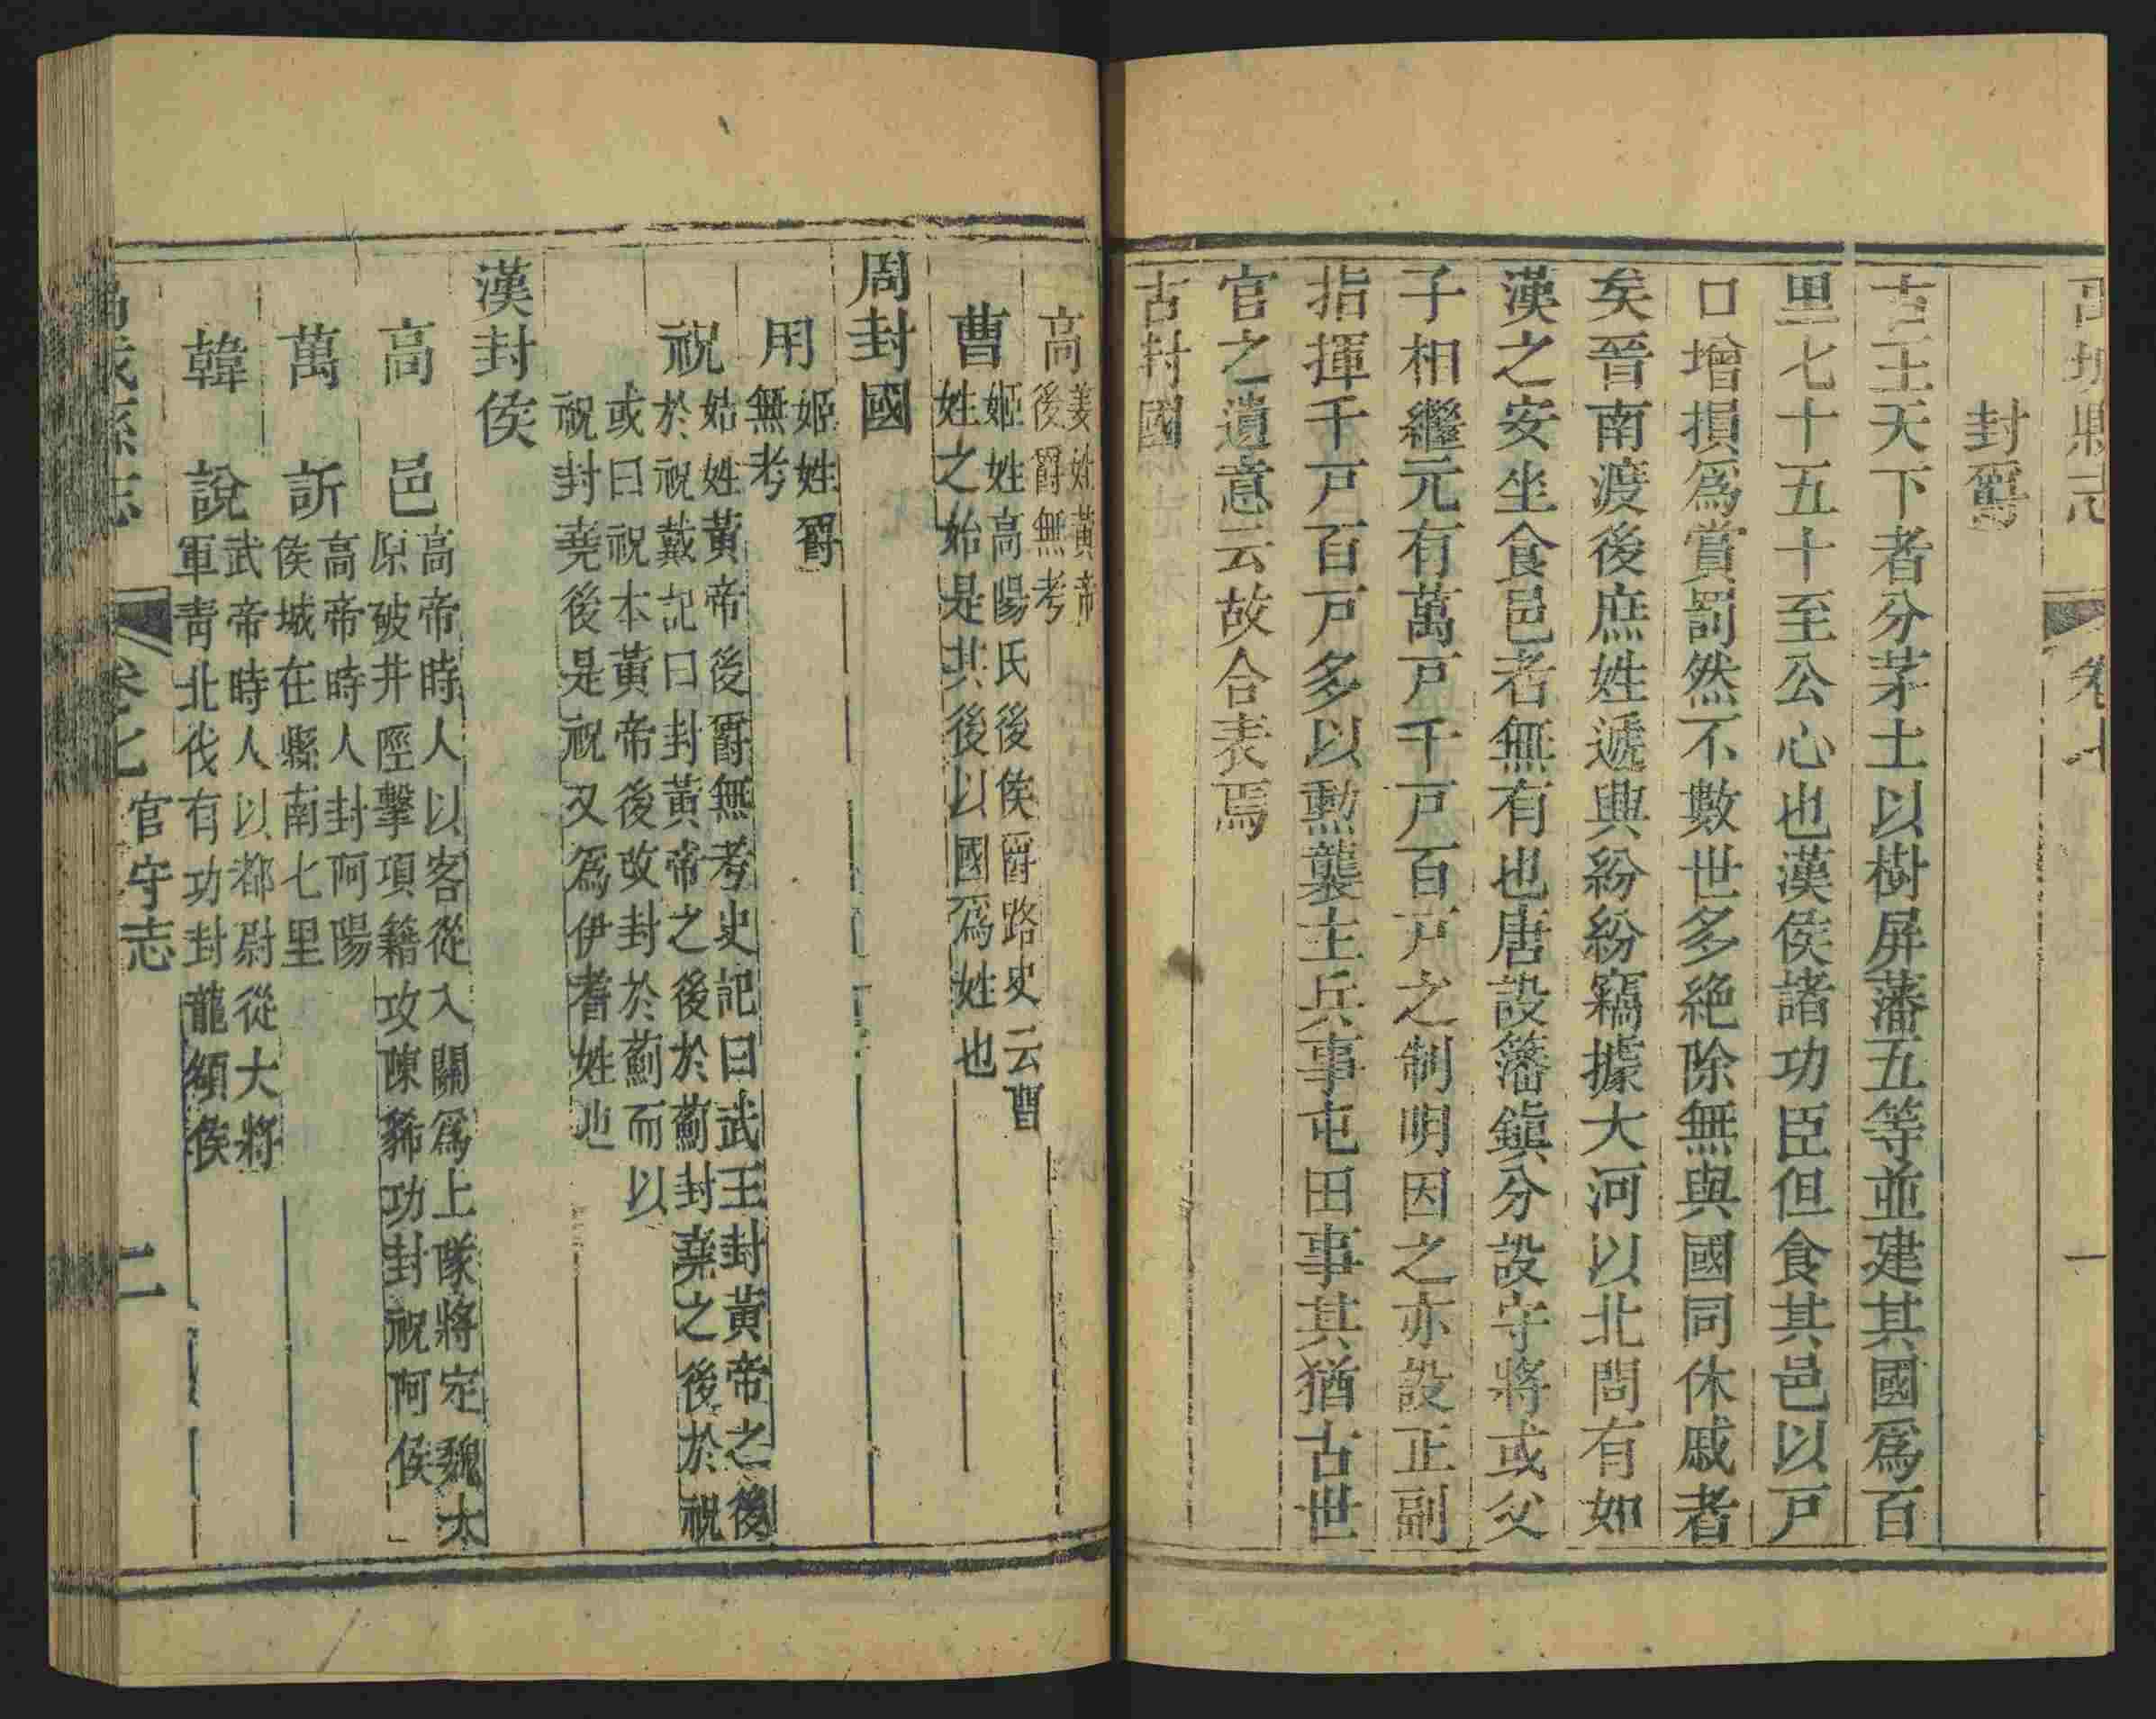 禹城縣志
卷七
一
封爵
古王天下者分茅土以樹屏藩五等並建其國爲百
里七十五十至公心也漢侯諸功臣但食其邑以戸
口增損爲賞罰然不數世多絶除無與國同休戚者
矣晉南渡後庶姓遞興紛紛竊據大河以北間有如
漢之安坐食邑者無有也唐設藩鎮分設守將或父
子相繼元有萬戸千戸百戸之制明因之亦設正副
指揮千戸百戸多以勲襲主兵事屯田事其猶古世
官之遺意云故合表焉
古封國
高姜姓黃帝
後爵無考
曹姬姓高陽氏後侯爵路史云曹
姓之始是其後以國爲姓也
周封國
用姬姓爵
無考
祝姞姓黃帝後爵無考史記曰武王封黃帝之後
於祝戴記曰封黃帝之後於薊封堯之後於祝
或曰祝本黃帝後改封於薊而以
祝封堯後是祝又爲伊耆姓也
漢封侯
高邑高帝時人以客從入關爲上隊將定魏太
原破井陘擊項籍攻陳豨功封祝阿侯
萬訢高帝時人封阿陽
侯城在縣南七里
韓說武帝時人以都尉從大將
軍靑北伐有功封龍頟侯
禹城縣志
卷七
官守志
二